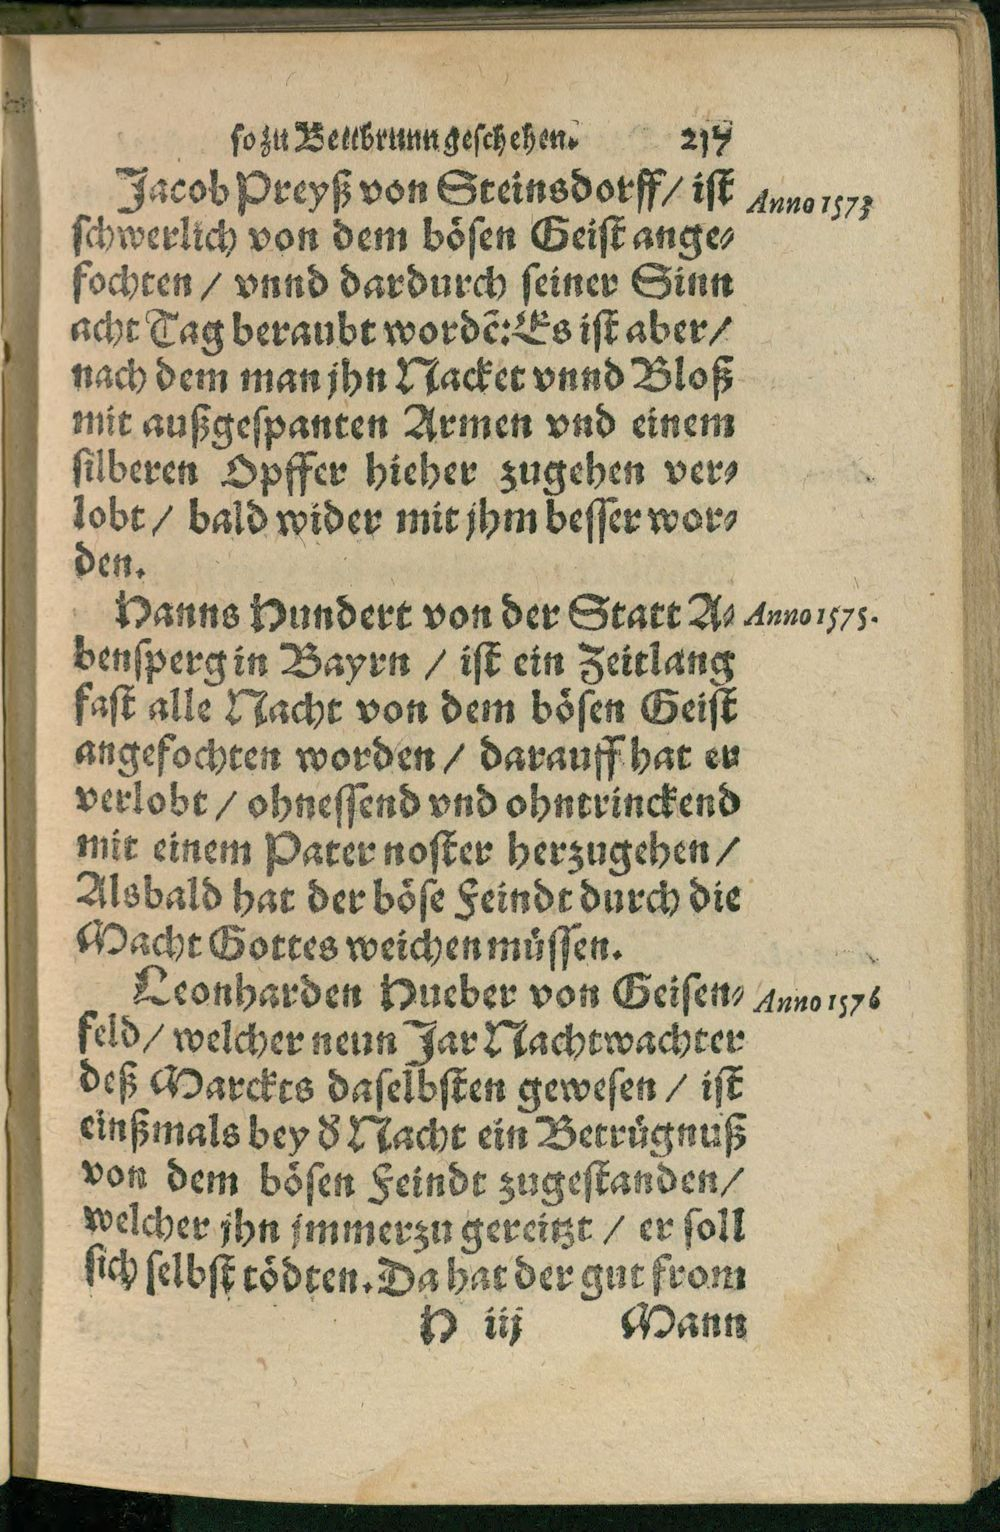 so zu Bettbrunn geschehen. 217
Jacob Preyß von Steinsdorff / ist Anno 1573
schwerlich von dem bösen Geist ange⸗
fochten / vnnd dardurch seiner Sinn
acht Tag beraubt wordē: Es ist aber /
nach dem man jhn Nacket vnnd Bloß
mit außgespanten Armen vnd einem
silberen Opffer hieher zugehen ver⸗
lobt / bald wider mit jhm besser wor⸗
den.
Hanns Hundert von der Statt A⸗ Anno 1575.
bensperg in Bayrn / ist ein Zeitlang
fast alle Nacht von dem bösen Geist
angefochten worden / darauff hat er
verlobt / ohnessend vnd ohntrinckend
mit einem Pater noster herzugehen /
Alsbald hat der böse Feindt durch die
Macht Gottes weichen müssen.
Leonharden Hueber von Geisen⸗ Anno 1576
feld / welcher neun Jar Nachtwachter
deß Marckts daselbsten gewesen / ist
einßmals bey d̕ Nacht ein Betrügnuß
von dem bösen Feindt zugestanden /
welcher jhn jmmerzu gereitzt / er soll
sich selbst tödten. Da hat der gut from
H iij Mann